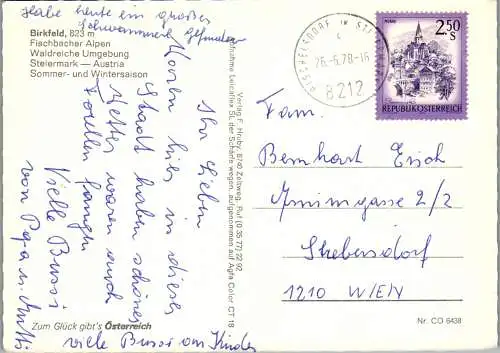 Habe heute ein großes
Schwammerl gefunden
Birkfeld, 823 m
Fischbacher Alpen
Waldreiche Umgebung
Steiermark — Austria
Sommer- und Wintersaison
Ihr Lieben
Waren hier in dieser
Stadt haben schönes
Wetter waren auch
Forellen fangen
Vielle Bussi
von Papa u. Mutti
Zum Glück gibt's Österreich
viele Bussi an Kinder
Verlag F. Hruby, 8740 Zeltweg, Ruf (0 35 77) 22 92
Aufnahme Leicaflex SL der Schärfe wegen, aufgenommen auf Agfa Color CT 18
PISCHELSDORF IN STEIERMARK
26.-6.78-16
8212
MURAU
2.50
S
REPUBLIK ÖSTERREICH
Fam.
Bernhart Erich
gasse 2/2
Strebersdorf
1210 WIEN
Nr. CO 6438